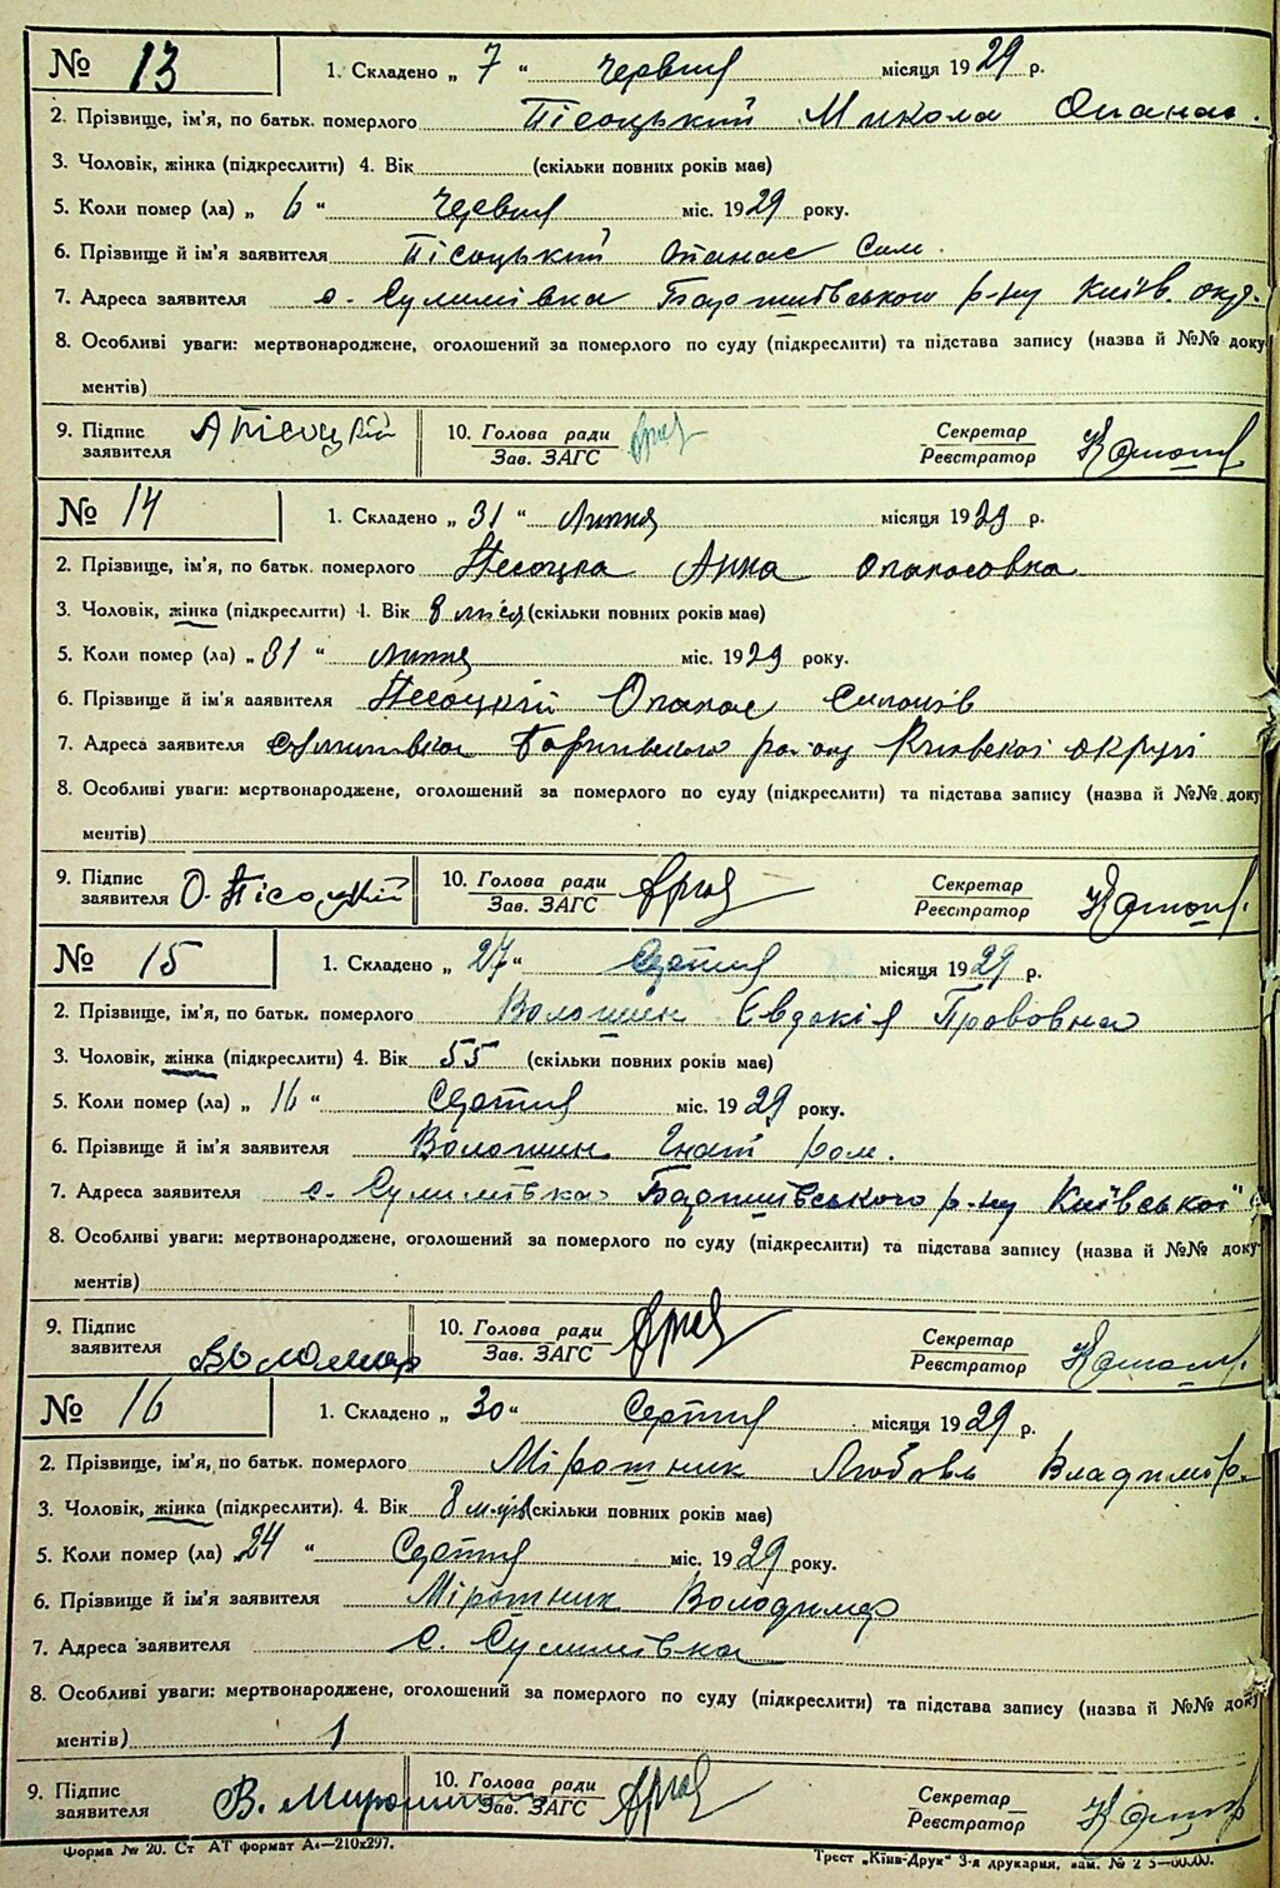 № 13 1. Складено „ 7 “ Червня місяця 1929 р.
2. Прізвище, ім'я, по батьк. померлого Пісоцький Микола Опанас.
3. Чоловік, жінка (підкреслити) 4. Вік (скільки повних років має)
5. Коли помер (ла) „ 6 “ Червня міс. 1929 року.
6. Прізвище й ім'я заявителя Пісоцький Опанас Сим.
7. Адреса заявителя с. Сулимівка Баришівського р-ну Київ. окр.
8. Особливі уваги: мертвонароджене, оголошений за померлого по суду (підкреслити) та підстава запису (назва й №№ доку
ментів)
9. Підпис заявителя А Пісоцкій 10. Голова ради Зав. ЗАГС Секретар Реєстратор
№ 14 1. Складено „ 31 “ Липня місяця 1929 р.
2. Прізвище, ім'я, по батьк. померлого Песоцка Анна Опанасовна
3. Чоловік, жінка (підкреслити) 4. Вік 8 міся (скільки повних років має)
5. Коли помер (ла) „ 31 “ липня міс. 1929 року.
6. Прізвище й ім'я заявителя Песоцкій Опанас Симонів
7. Адреса заявителя Сулимивка Баришивского району Киевскоі округі
8. Особливі уваги: мертвонароджене, оголошений за померлого по суду (підкреслити) та підстава запису (назва й №№ доку
ментів)
9. Підпис заявителя О. Пісоцкій 10. Голова ради Зав. ЗАГС Секретар Реєстратор
№ 15 1. Складено „ 27 “ Серпня місяця 1929 р.
2. Прізвище, ім'я, по батьк. померлого Волошин Євдокія Прововна
3. Чоловік, жінка (підкреслити) 4. Вік 55 (скільки повних років має)
5. Коли помер (ла) „ 16 “ Серпня міс. 1929 року.
6. Прізвище й ім'я заявителя Волошин Гнат Ром.
7. Адреса заявителя с. Сулимівка Баришівського р-ну Київської
8. Особливі уваги: мертвонароджене, оголошений за померлого по суду (підкреслити) та підстава запису (назва й №№ доку
ментів)
9. Підпис заявителя 10. Голова ради Зав. ЗАГС Секретар Реєстратор
№ 16 1. Складено „ 30 “ Серпня місяця 1929 р.
2. Прізвище, ім'я, по батьк. померлого Мірошник Любовь Владимір.
3. Чоловік, жінка (підкреслити). 4. Вік 8 (скільки повних років має)
5. Коли помер (ла) 24 “ Серпня міс. 1929 року.
6. Прізвище й ім'я заявителя Мірошник Володимер
7. Адреса заявителя с. Сулимівка
8. Особливі уваги: мертвонароджене, оголошений за померлого по суду (підкреслити) та підстава запису (назва й №№ доку
ментів) 1
9. Підпис заявителя В. Мирошник 10. Голова ради Зав. ЗАГС Секретар Реєстратор
Форма № 20. Ст АТ формат А₄—210х297.
Трест „Київ-Друк“ 3-я друкарня, зам. №